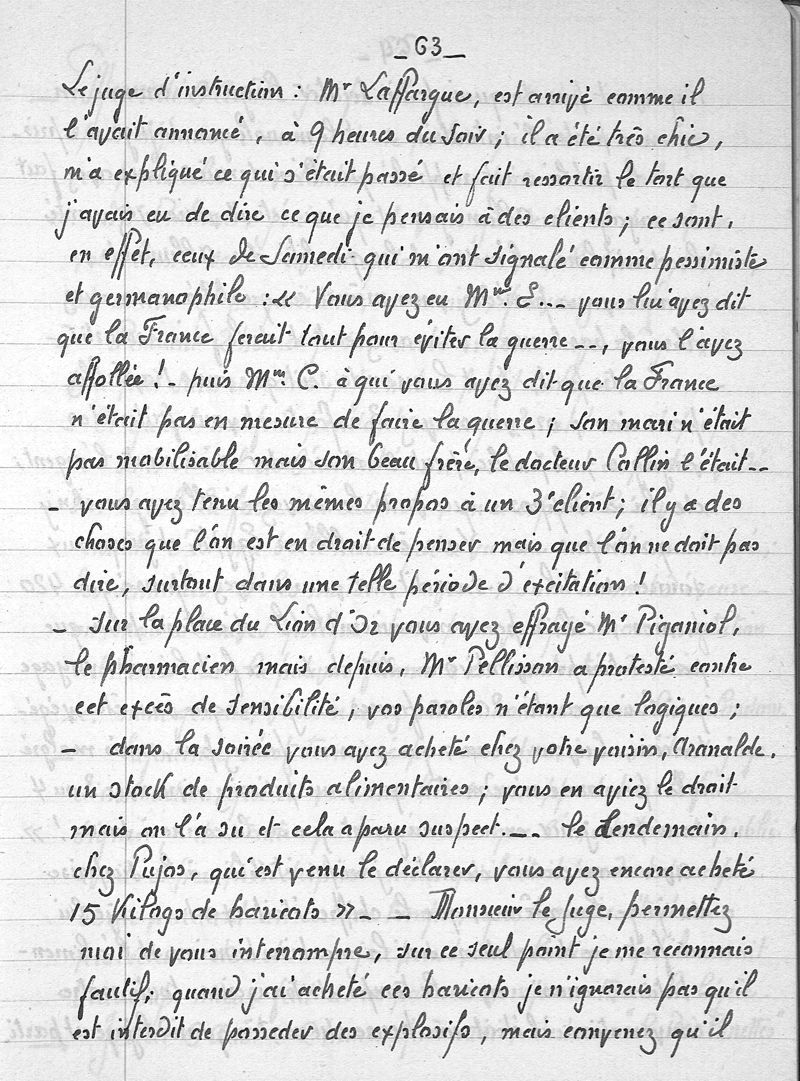 _ 63 _
Le juge d'instruction : Mr Laffargue, est arrivé comme il
l'avait annoncé, à 9 heures du soir ; il a été très chic,
m'a expliqué ce qui s'était passé et fait ressortir le tort que
j'avais eu de dire ce que je pensais à des clients ; ce sont,
en effet, ceux de Samedi qui m'ont signalé comme pessimiste
et germanophile : « Vous avez eu Mme E... vous lui avez dit
que la France ferait tout pour éviter la guerre _ _, vous l'avez
affollée ! _ puis Mme C. à qui vous avez dit que la France
n'était pas en mesure de faire la guerre ; son mari n'était
pas mobilisable mais son beau frère, le docteur Callin l'était _ _
_ vous avez tenu les mêmes propos à un 3e client ; il y a des
choses que l'on est en droit de penser mais que l'on ne doit pas
dire, surtout dans une telle période d'excitation !
_ Sur la place du Lion d'Or vous avez effrayé Mr Piganiol,
le pharmacien mais depuis, Mr Pellisson a protesté contre
cet excès de sensibilité, vos paroles n'étant que logiques ;
_ dans la soirée vous avez acheté chez votre voisin, Aranalde,
un stock de produits alimentaires ; vous en aviez le droit
mais on l'a su et cela a paru suspect. _ _ le lendemain,
chez Pujos, qui est venu le déclarer, vous avez encore acheté
15 Kilogs de haricots » _ _ Monsieur le Juge, permettez
moi de vous interrompre, sur ce seul point je me reconnais
fautif ; quand j'ai acheté ces haricots je n'ignorais pas qu'il
est interdit de posseder des explosifs, mais convenez qu'il